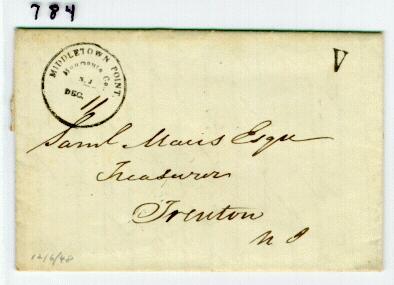 784
MIDDLETOWN POINT.
Monmouth Co.
N.J
DEC.
V
Saml Mairs Esqr
Treasurer
Trenton
N J
12/6/48